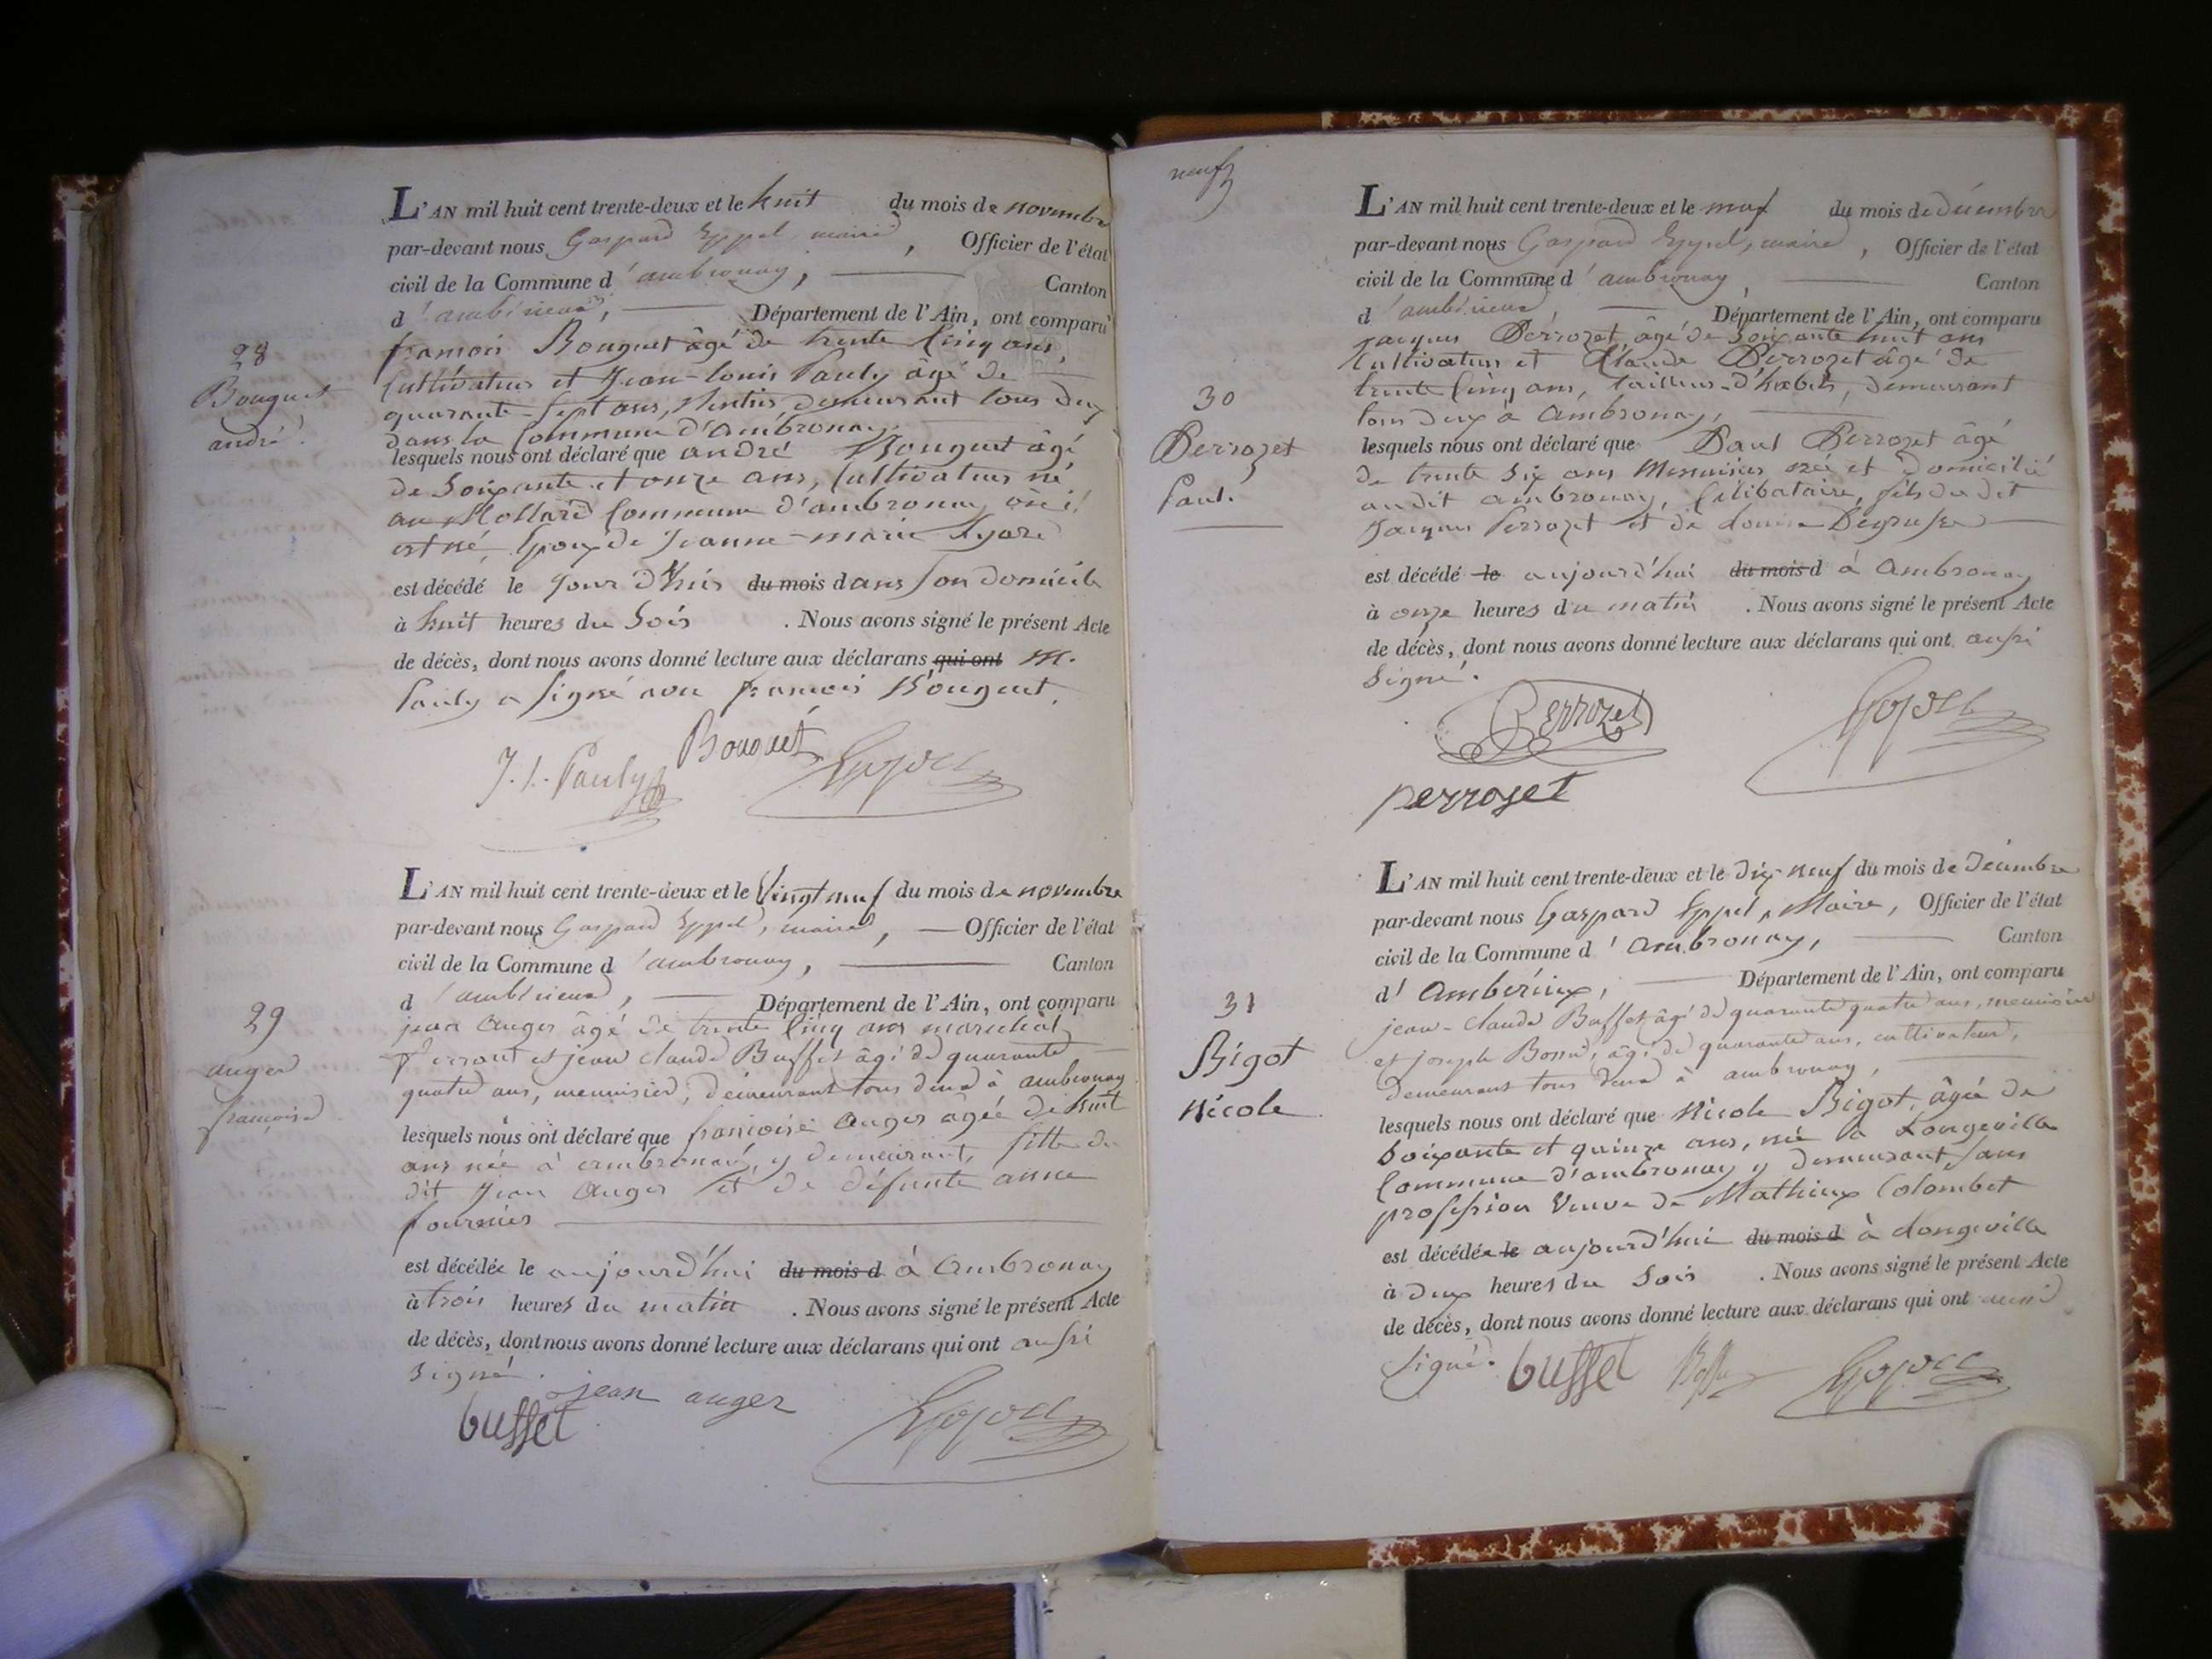 L'AN mil huit cent trente-deux et le huit du mois de novembre
par-devant nous Gaspard Eppel, maire, Officier de l'état
civil de la Commune d'ambronay, Canton
d'ambérieux, Département de l'Ain, ont comparu
28
Bouguet
andré
françois Bouguet âgé de trente cinq ans,
Cultivateur et Jean-louis Pauly âgé de
quarante-sept ans, demeurant tous deux
dans la Commune d'ambronay
lesquels nous ont déclaré que andré Bouguet âgé
de Soixante et onze ans, Cultivateur né
au Mollard Commune d'ambronay où il
est né, Epoux de Jeanne-marie
est décédé le jour d'hui du mois dans son domicile
à huit heures du Soir. Nous avons signé le présent Acte
de décès, dont nous avons donné lecture aux déclarans qui ont M.
Pauly a signé avec françois Bouguet.
J. L. Pauly Bouguet Eppel
L'AN mil huit cent trente-deux et le Vingt neuf du mois de novembre
par-devant nous Gaspard Eppel, maire, Officier de l'état
civil de la Commune d'ambronay, Canton
d'ambérieux, Département de l'Ain, ont comparu
29
auger
françoise
jean Auger âgé de trente cinq ans marechal
ferrant et jean claude Buffet âgé de quarante
quatre ans, menuisier, demeurant tous deux à ambronay
lesquels nous ont déclaré que françoise Auger âgée de huit
ans née à ambronay, y demeurant, fille du
dit Jean Auger et de défunte anne
fournier
est décédée le aujourd'hui du mois d à Ambronay
à trois heures du matin. Nous avons signé le présent Acte
de décès, dont nous avons donné lecture aux déclarans qui ont aussi
signé.
jean auger
buffet Eppel
neuf
L'AN mil huit cent trente-deux et le neuf du mois de Décembre
par-devant nous Gaspard Eppel, maire, Officier de l'état
civil de la Commune d'ambronay Canton
d'ambérieux Département de l'Ain, ont comparu
30
Perrozet
Paul.
Jacques Perrozet, âgé de Soixante huit ans
Cultivateur et Claude Perrozet âgé de
trente cinq ans, tailleur-d'habits, demeurant
tous deux à Ambronay,
lesquels nous ont déclaré que Paul Perrozet âgé
de trente Six ans Menuisier né et domicilié
audit ambronay, Célibataire, fils du dit
Jacques Perrozet et de
est décédé le aujourd'hui du mois d à Ambronay
à onze heures du matin. Nous avons signé le présent Acte
de décès, dont nous avons donné lecture aux déclarans qui ont aussi
Signé.
Perrozet Eppel
perrozet
L'AN mil huit cent trente-deux et le dix neuf du mois de Décembre
par-devant nous Gaspard Eppel, Maire, Officier de l'état
civil de la Commune d'Ambronay, Canton
d'Ambérieux, Département de l'Ain, ont comparu
31
Bigot
Nicole
jean-claude Buffet âgé de quarante quatre ans, menuisier
et joseph, âgé de quarante ans, cultivateur,
demeurant tous deux à ambronay,
lesquels nous ont déclaré que Nicole Bigot, âgée de
Soixante et quinze ans, née à Longeville
Commune d'ambronay y demeurant sans
profession Veuve de Mathieux Colombet
est décédée le aujourd'hui du mois d à Longeville
à deux heures du Soir. Nous avons signé le présent Acte
de décès, dont nous avons donné lecture aux déclarans qui ont aussi
signé. buffet Eppel